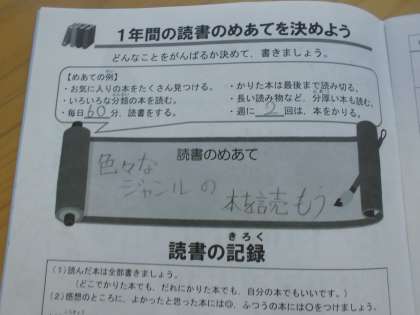 1年間の読書のめあてを決めよう
どんなことをがんばるか決めて、書きましょう。
【めあての例】
・お気に入りの本をたくさん見つける。
・いろいろな分類の本を読む。
・毎日60分、読書をする。
・かりた本は最後まで読み切る。
・長い読み物など、分厚い本も読む。
・週に2回は、本をかりる。
読書のめあて
色々な
ジャンルの
本を読もう
読書の記録
(1)読んだ本は全部書きましょう。
(どこでかりた本でも、だれにかりた本でも、自分の本でもいいです。)
(2)感想のところに、よかったと思った本には◎、ふつうの本には○をつけましょう。